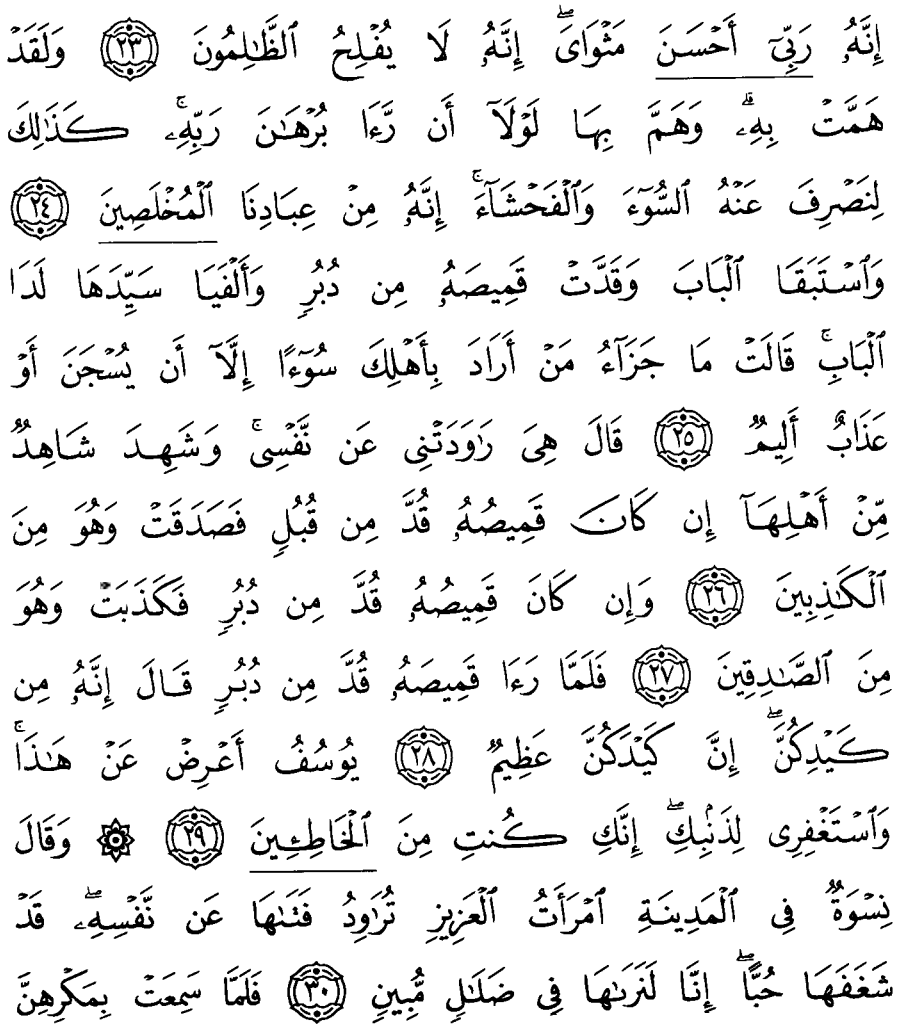 إِنَّهُۥ رَبِّىٓ أَحْسَنَ مَثْوَاىَ ۖ إِنَّهُۥ لَا يُفْلِحُ ٱلظَّـٰلِمُونَ ٢٣ وَلَقَدْ
هَمَّتْ بِهِۦ ۖ وَهَمَّ بِهَا لَوْلَآ أَن رَّءَا بُرْهَـٰنَ رَبِّهِۦ ۚ كَذَٰلِكَ
لِنَصْرِفَ عَنْهُ ٱلسُّوٓءَ وَٱلْفَحْشَآءَ ۚ إِنَّهُۥ مِنْ عِبَادِنَا ٱلْمُخْلَصِينَ ٢٤
وَٱسْتَبَقَا ٱلْبَابَ وَقَدَّتْ قَمِيصَهُۥ مِن دُبُرٍ وَأَلْفَيَا سَيِّدَهَا لَدَا
ٱلْبَابِ ۚ قَالَتْ مَا جَزَآءُ مَنْ أَرَادَ بِأَهْلِكَ سُوٓءًا إِلَّآ أَن يُسْجَنَ أَوْ
عَذَابٌ أَلِيمٌ ٢٥ قَالَ هِىَ رَٰوَدَتْنِى عَن نَّفْسِى ۚ وَشَهِدَ شَاهِدٌ
مِّنْ أَهْلِهَآ إِن كَانَ قَمِيصُهُۥ قُدَّ مِن قُبُلٍ فَصَدَقَتْ وَهُوَ مِنَ
ٱلْكَـٰذِبِينَ ٢٦ وَإِن كَانَ قَمِيصُهُۥ قُدَّ مِن دُبُرٍ فَكَذَبَتْ وَهُوَ
مِنَ ٱلصَّـٰدِقِينَ ٢٧ فَلَمَّا رَءَا قَمِيصَهُۥ قُدَّ مِن دُبُرٍ قَالَ إِنَّهُۥ مِن
كَيْدِكُنَّ ۖ إِنَّ كَيْدَكُنَّ عَظِيمٌ ٢٨ يُوسُفُ أَعْرِضْ عَنْ هَـٰذَا ۚ
وَٱسْتَغْفِرِى لِذَنۢبِكِ ۖ إِنَّكِ كُنتِ مِنَ ٱلْخَاطِـِٔينَ ٢٩ ۞ وَقَالَ
نِسْوَةٌ فِى ٱلْمَدِينَةِ ٱمْرَأَتُ ٱلْعَزِيزِ تُرَٰوِدُ فَتَىٰهَا عَن نَّفْسِهِۦ ۖ قَدْ
شَغَفَهَا حُبًّا ۖ إِنَّا لَنَرَىٰهَا فِى ضَلَـٰلٍ مُّبِينٍ ٣٠ فَلَمَّا سَمِعَتْ بِمَكْرِهِنَّ